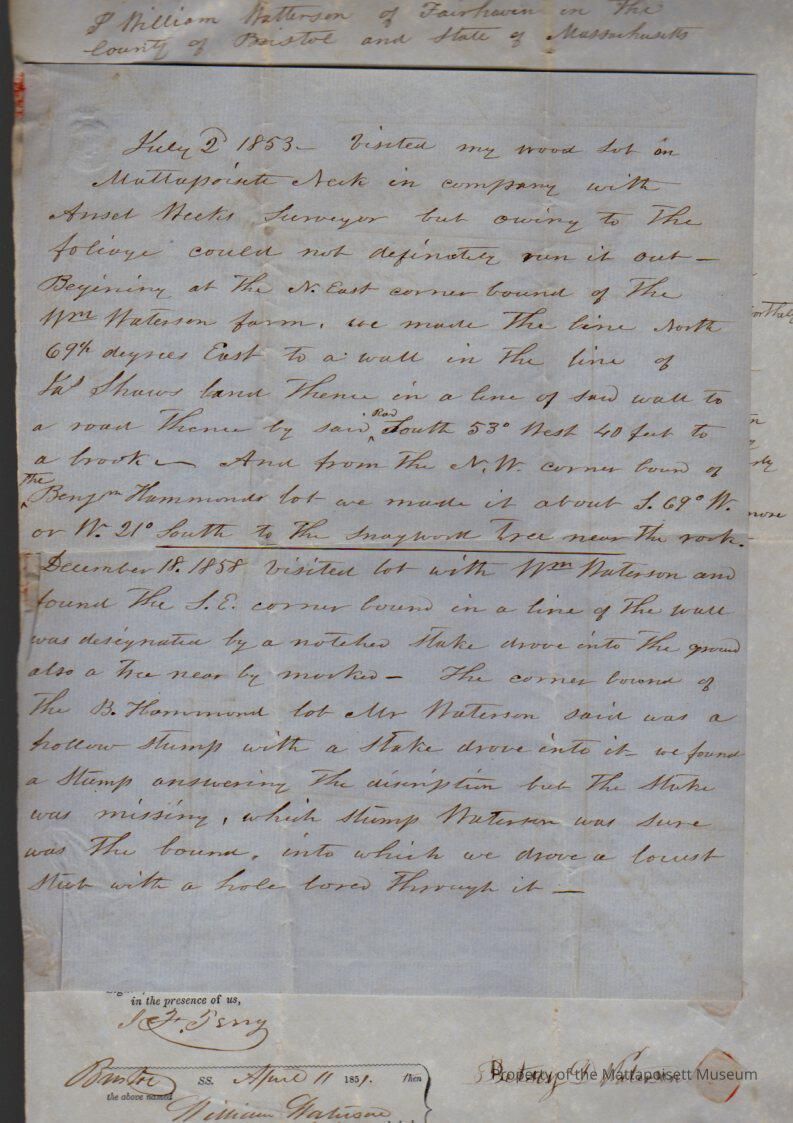 I William Watterson of Fairhaven in the
County of Bristol and State of Massachusetts
July 2d 1853 — Visited my wood lot on
Mattapoisett Neck in company with
Ansel Weeks Surveyor but owing to the
foliage could not definately run it out —
Begining at the N. East corner bound of the
Wm Waterson farm, we made the line North
69½ degrees East to a wall in the line of
Jas Shaws land thence in a line of said wall to
a road thence by said Road South 53° West 40 feet to
a brook — And from the N.W. corner boun of
the Benjm Hammonds lot we made it about S. 69° W.
or W. 21° South to the snaywood tree near the rock.
December 18. 1858 Visited lot with Wm Waterson and
found the S.E. corner bound in a line of the wall
was designated by a notched stake drove into the ground
also a tree near by marked — The corner bound of
the B. Hammond lot Mr Waterson said was a
hollow stump with a stake drove into it — we found
a stump answering the discription but the stake
was missing, which stump Waterson was sure
was the bound, into which we drove a locust
stub with a hole bored through it —
more
in the presence of us,
Perry
Bristol ss. April 11 1851. then
the above named
William Waterson
Betsey Waterson
Property of the Mattapoisett Museum